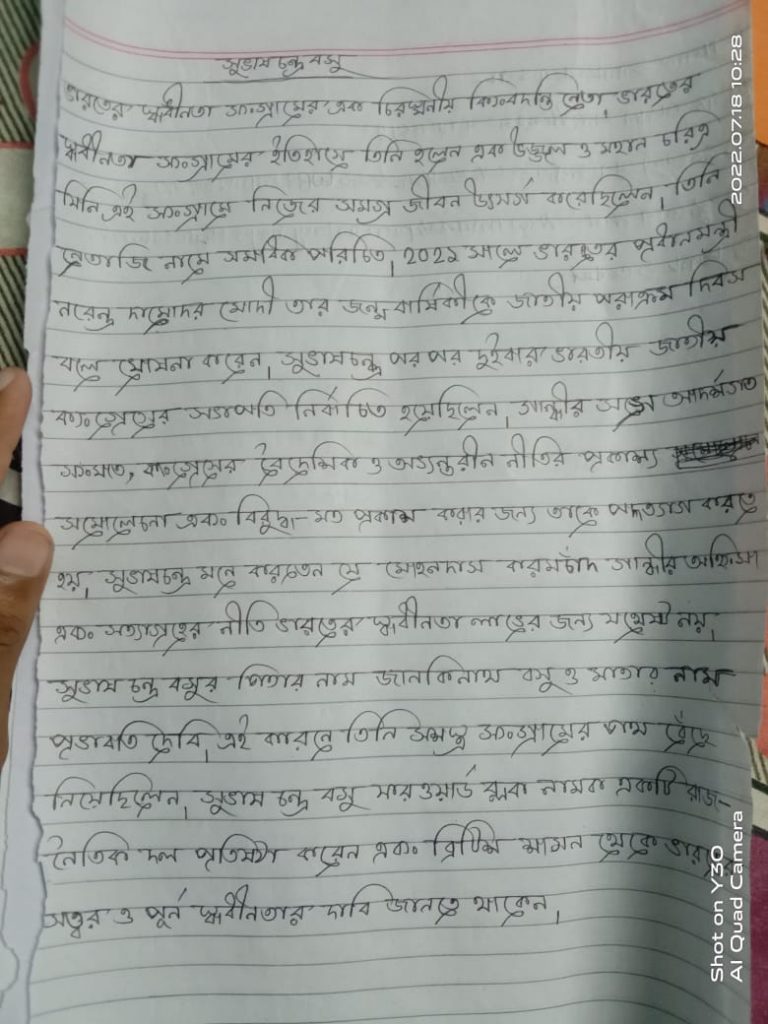 সুভাষ চন্দ্র বসু
ভারতের স্বাধীনতা সংগ্রামের এক চিরস্মনীয় কিংবদন্তি নেতা, ভারতের
স্বাধীনতা সংগ্রামের ইতিহাসে তিনি হলেন এক উজ্জ্বল ও মহান চরিত্র
যিনি এই সংগ্রামে নিজের সমগ্র জীবন উৎসর্গ করেছিলেন, তিনি
নেতাজি নামে সমধিক পরিচিত, 2021 সালে ভারতের প্রধানমন্ত্রী
নরেন্দ্র দামোদর মোদী তার জন্ম বার্ষিকীকে জাতীয় পরাক্রম দিবস
বলে ঘোষনা করেন, সুভাষচন্দ্র পর পর দুইবার ভারতীয় জাতীয়
কংগ্রেসের সভাপতি নির্বাচিত হয়েছিলেন, গান্ধীর সঙ্গে আদর্শগত
সংঘাত, কংগ্রেসের বৈদেশিক ও অভ্যন্তরীন নীতির প্রকাশ্য
সমালেচনা এবং বিরুদ্ধ-মত প্রকাশ করার জন্য তাকে পদত্যাগ করতে
হয়, সুভাষচন্দ্র মনে করতেন যে মোহনদাস করমচাঁদ গান্ধীর অহিংসা
এবং সত্যাগ্রহের নীতি ভারতের স্বাধীনতা লাভের জন্য যথেষ্ট নয়,
সুভাষ চন্দ্র বসুর পিতার নাম জানকিনাথ বসু ও মাতার নাম
প্রভাবতি দেবি, এই কারনে তিনি সশস্ত্র সংগ্রামের পথ বেঁছে
নিয়েছিলেন, সুভাষ চন্দ্র বসু ফারওয়ার্ড ব্লক নামক একটি রাজ-
নৈতিক দল প্রতিষ্ঠা করেন এবং ব্রিটিশ শাসন থেকে
সত্বর ও পূর্ন স্বাধীনতার দাবি জানতে থাকেন,
2022.07.18 10:28
Shot on Y30
AI Quad Camera